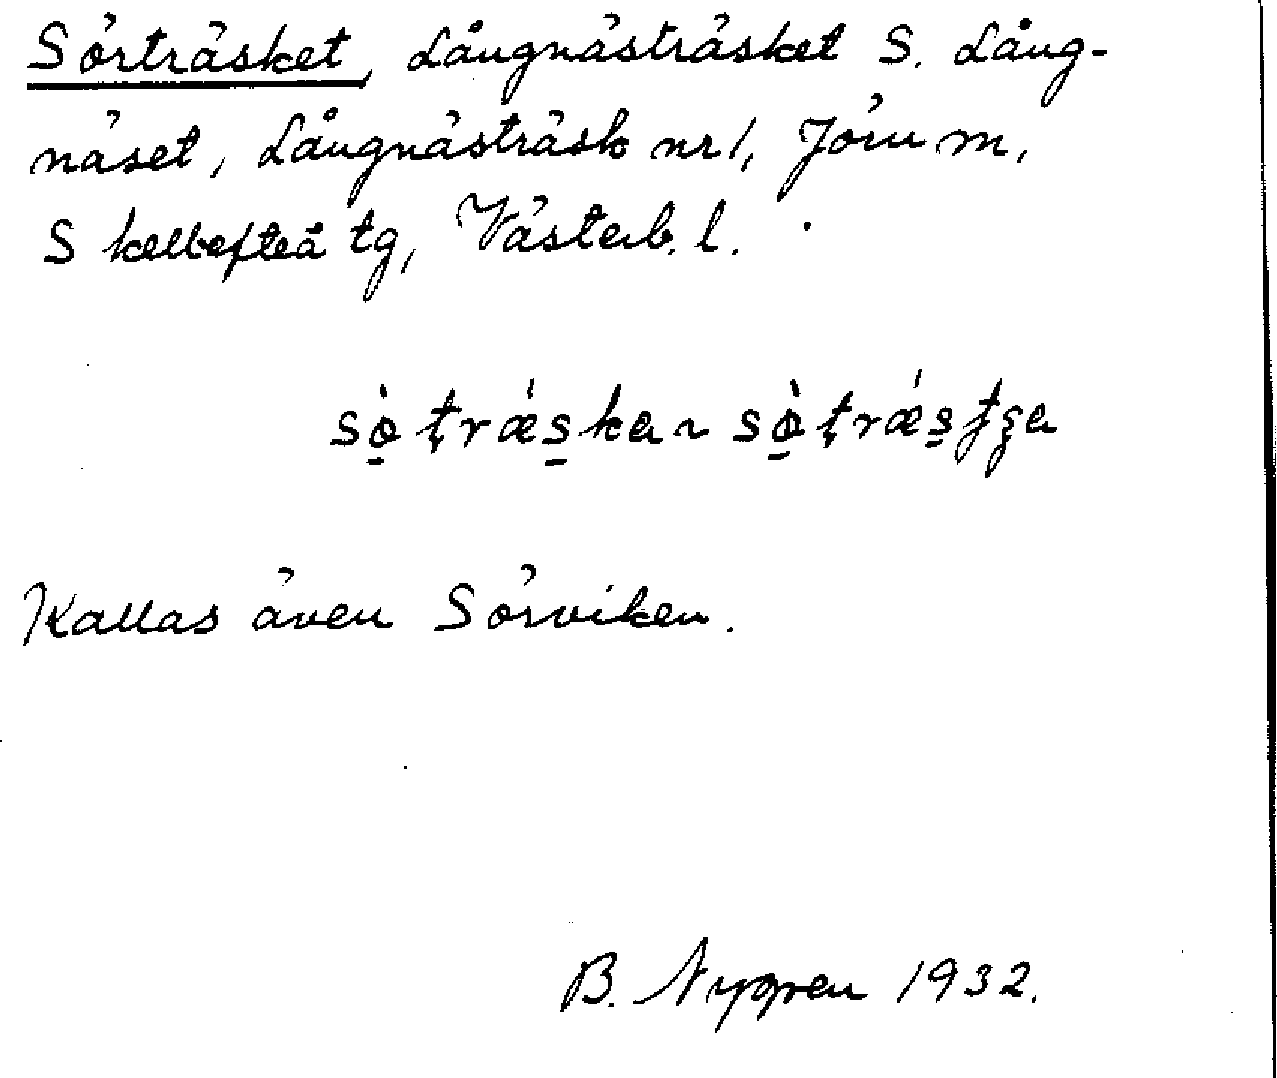 Sörträsket, Långnästräsket S. Lång-
näset, Långnästräsk nr 1, Jörn m,
Skellefteå tg, Västerb. l.
sò̱ṭrǽs̱ka ~ sò̱ṭrǽs̱tʒa
Kallas även Sörviken.
B. Nygren 1932.